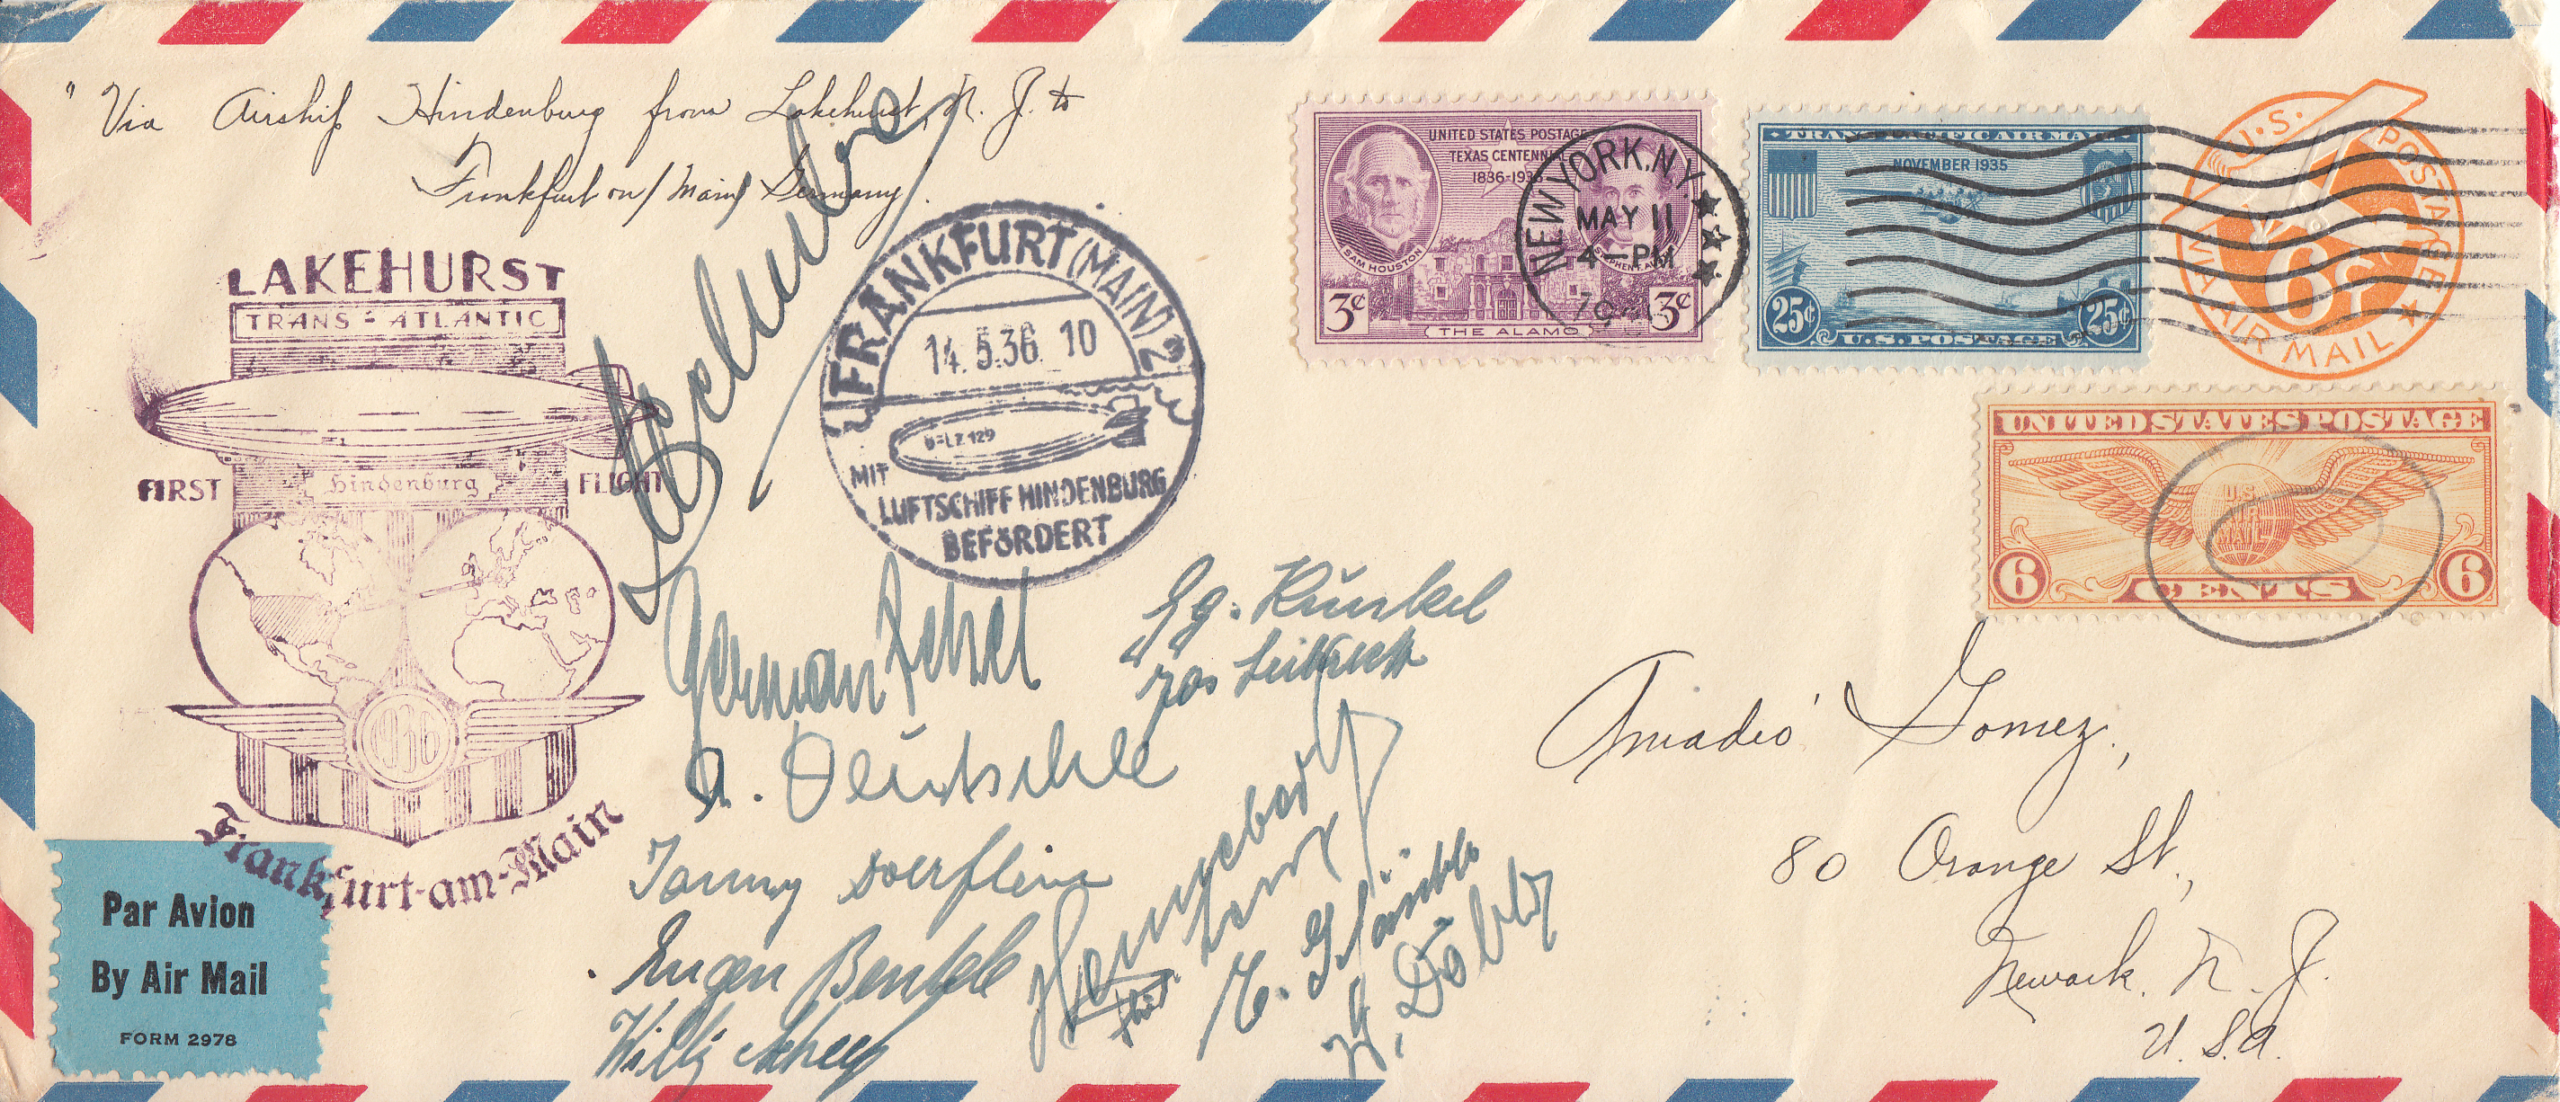 "Via Airship Hindenburg from Lakehurst, N. J. to
Frankfurt on/Main/ Germany.
LAKEHURST
TRANS-ATLANTIC
FIRST Hindenburg FLIGHT
1936
Frankfurt-am-Main
Par Avion
By Air Mail
FORM 2978
FRANKFURT (MAIN) 2
14.5.36. 10
D-LZ 129
MIT
LUFTSCHIFF HINDENBURG
BEFÖRDERT
UNITED STATES POSTAGE
TEXAS CENTENNIAL
1836-1936
SAM HOUSTON
3¢ 3¢
THE ALAMO
NEW YORK, N.Y.
MAY 11
4-PM
TRANS-PACIFIC AIR MAIL
NOVEMBER 1935
25¢ 25¢
U.S. POSTAGE
U.S. POSTAGE
6¢
VIA AIR MAIL
UNITED STATES POSTAGE
U.S.
AIR
MAIL
6 CENTS 6
German Zettel
A. Deutschle
Eugen Bentele
Willy Scheef
Amadeo Gomez,
80 Orange St.,
Newark, N. J.
U. S. A.